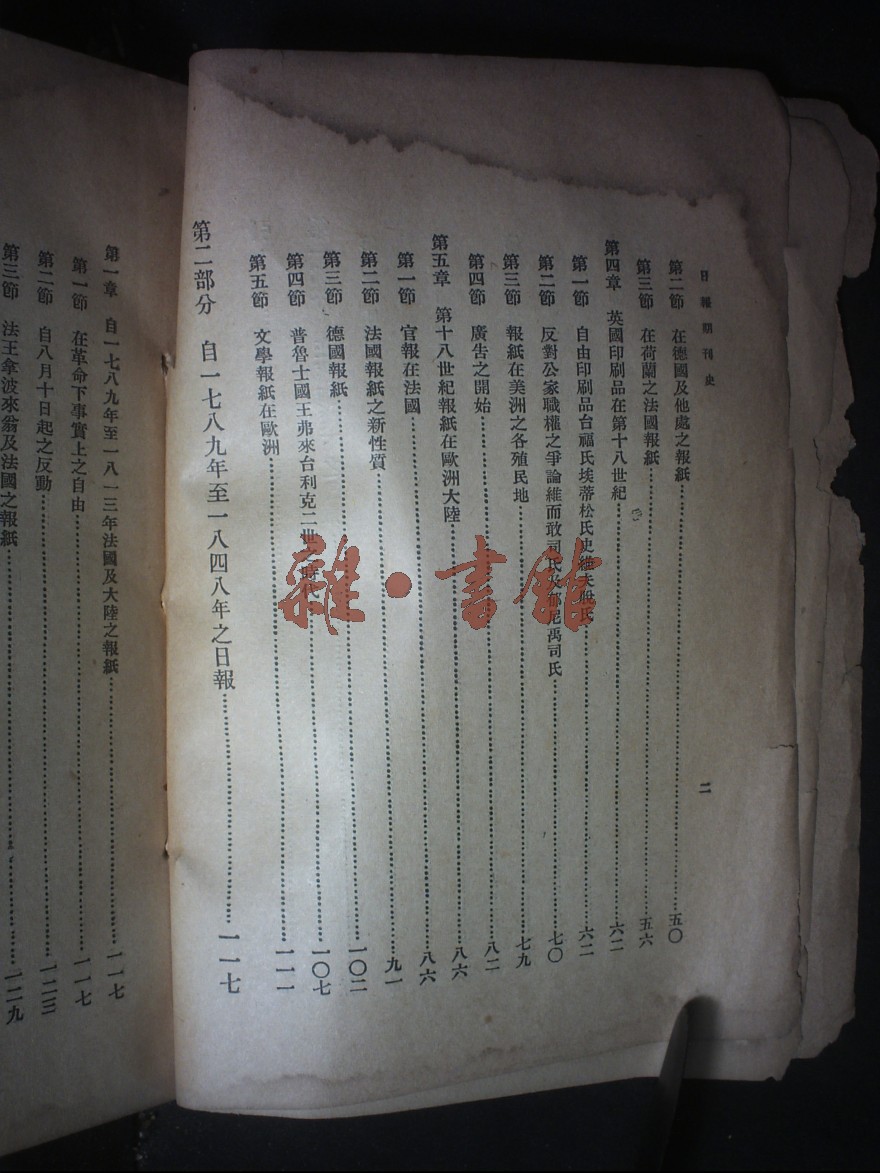 日報期刊史
二
第二節 在德國及他處之報紙 五〇
第三節 在荷蘭之法國報紙 五六
第四章 英國印刷品在第十八世紀 六二
第一節 自由印刷品台福氏埃蒂松氏史維夫脫氏 六二
第二節 反對公家職權之爭論維而敢司氏及郁尼禹司氏 七〇
第三節 報紙在美洲之各殖民地 七九
第四節 廣告之開始 八二
第五章 第十八世紀報紙在歐洲大陸 八六
第一節 官報在法國 八六
第二節 法國報紙之新性質 九一
第三節 德國報紙 一〇二
第四節 普魯士國王弗來台利克二世之時代 一〇七
第五節 文學報紙在歐洲 一一一
第二部分 自一七八九年至一八四八年之日報 一一七
第一章 自一七八九年至一八一三年法國及大陸之報紙 一一七
第一節 在革命下事實上之自由 一一七
第二節 自八月十日起之反動 一二三
第三節 法王拿波來翁及法國之報紙 一二九
雜·書館